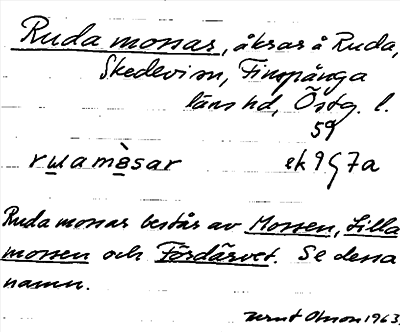 Ruda mossar, åkrar å Ruda,
Skedevi sn, Finspånga
läns hd, Östg. l.
59
rɯamə̀sar ek 9 G 7a
Ruda mossar består av Mossen, Lilla
mossen och Fördärvet. Se dessa
namn.
Olsson 1963.